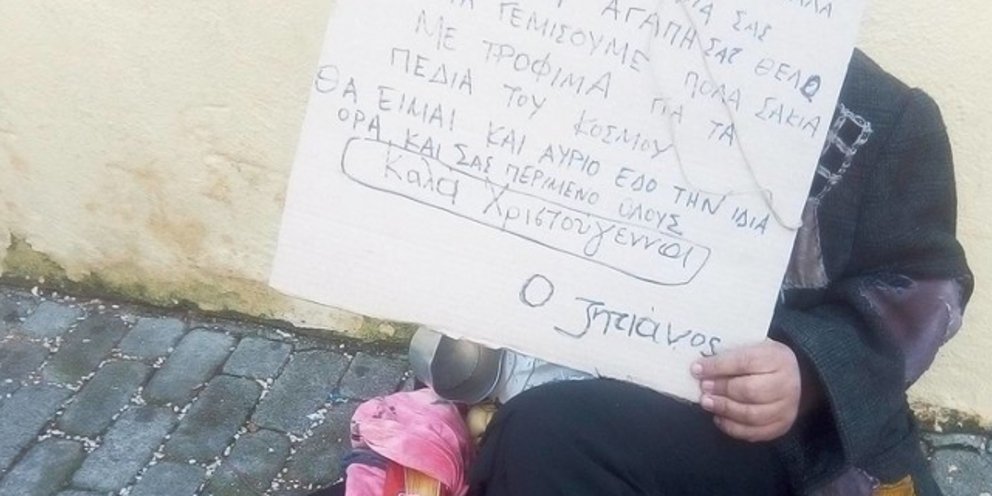 ΣΑΣ
ΑΓΑΠΗ ΣΑΣ ΘΕΛΩ
ΝΑ ΓΕΜΙΣΟΥΜΕ ΠΟΛΑ ΣΑΚΙΑ
ΜΕ ΤΡΟΦΙΜΑ ΓΙΑ ΤΑ
ΠΕΔΙΑ ΤΟΥ ΚΟΣΜΟΥ
ΘΑ ΕΙΜΑΙ ΚΑΙ ΑΥΡΙΟ ΕΔΟ ΤΗΝ ΙΔΙΑ
ΟΡΑ, ΚΑΙ ΣΑΣ ΠΕΡΙΜΕΝΟ ΌΛΟΥΣ
Καλά Χριστούγεννα
Ο ζητιάνος